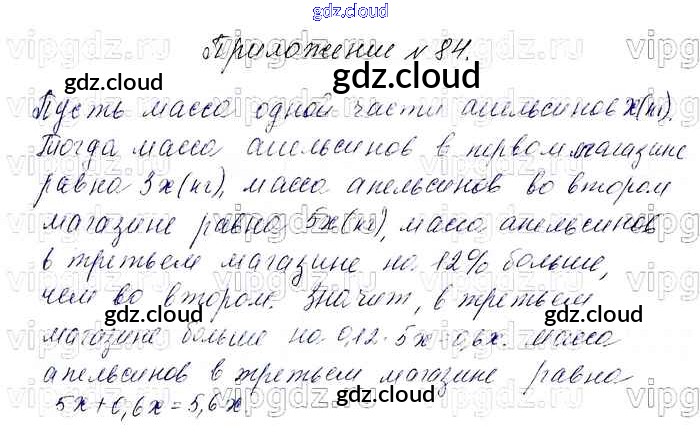 gdz.cloud
Приложение N 84.
gdz.cloud gdz.cloud
Пусть масса одной части апельсинов x(кг).
Тогда масса апельсинов в первом магазине
равна 3x(кг), масса апельсинов во втором
магазине равна 5x(кг), масса апельсинов
в третьем магазине на 12% больше,
чем во втором. Значит, в третьем
gdz.cloud gdz.cloud
магазине больше на 0,12·5x=0,6x. Масса
апельсинов в третьем магазине равна
5x+0,6x=5,6x
gdz.cloud gdz.cloud